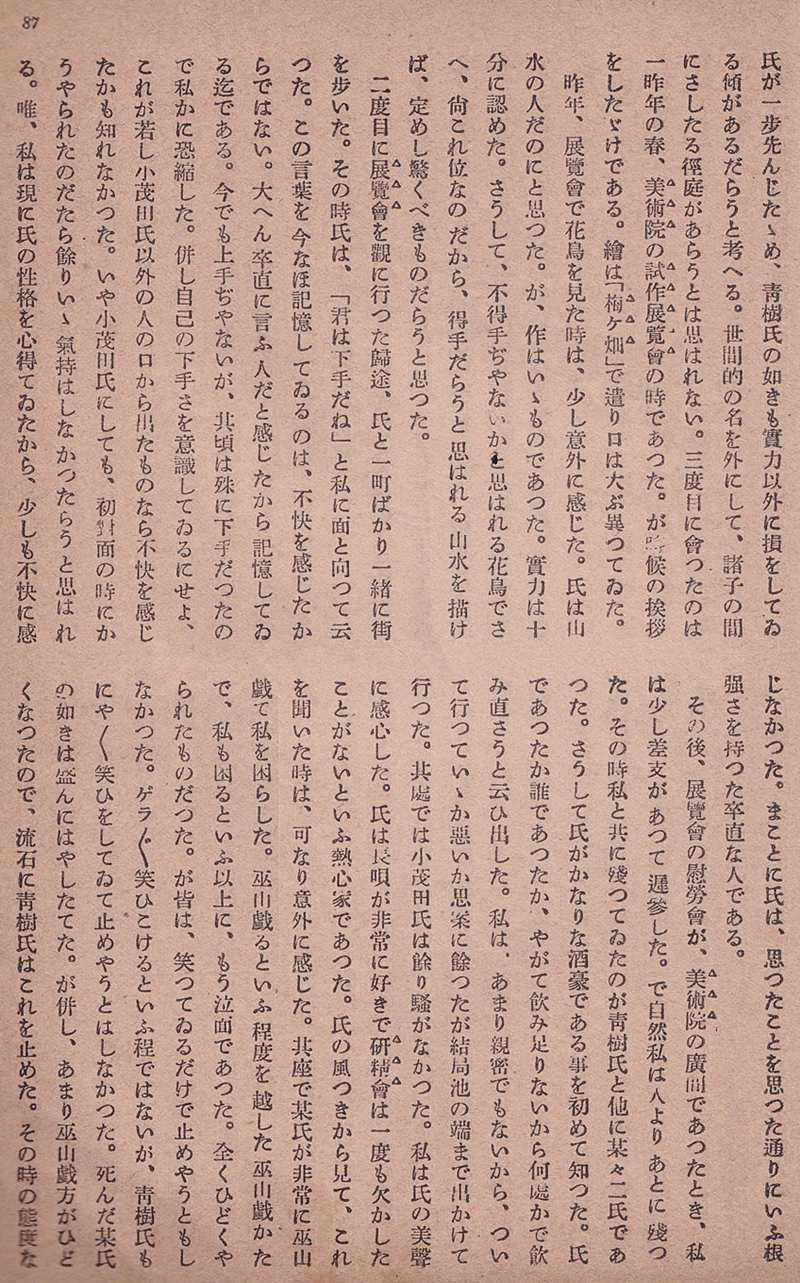 87
氏が一步先んじたゝめ、靑樹氏の如きも實力以外に損をしてゐ
る傾があるだらうと考へる。世間的の名を外にして、諸子の間
にさしたる徑庭があらうとは思はれない。三度目に會つたのは
一昨年の春、美術院の試作展覧會の時であつた。が時候の挨拶
をしたゞけである。繪は「梅ケ畑」で遣り口は大ぶ異つてゐた。
昨年、展覽會で花鳥を見た時は、少し意外に感じた。氏は山
水の人だのにと思つた。が、作はいゝものであつた。實力は十
分に認めた。さうして、不得手ぢやないかと思はれる花鳥でさ
へ、尙これ位なのだから、得手だらうと思はれる山水を描け
ば、定めし驚くべきものだらうと思つた。
二度目に展覽會を觀に行つた歸途、氏と一町ばかり一緒に街
を步いた。その時氏は、「君は下手だね」と私に面と向つて云
つた。この言葉を今なほ記憶してゐるのは、不快を感じたか
らではない。大へん卒直に言ふ人だと感じたから記憶してゐ
る迄である。今でも上手ぢやないが、其頃は殊に下手だつたの
で私かに恐縮した。併し自己の下手さを意識してゐるにせよ、
これが若し小茂田氏以外の人の口から出たものなら不快を感じ
たかも知れなかつた。いや小茂田氏にしても、初對面の時にか
うやられたのだたら餘りいゝ氣持はしなかつたらうと思はれ
る。唯、私は現に氏の性格を心得てゐたから、少しも不快に感
じなかつた。まことに氏は、思つたことを思つた通りにいふ根
强さを持つた卒直な人である。
その後、展覽會の慰勞會が、美術院の廣間であつたとき、私
は少し差支があつて遲參した。で自然私は人よりあとに殘つ
た。その時私と共に殘つてゐたのが靑樹氏と他に某々二氏であ
つた。さうして氏がかなりな酒豪である事を初めて知つた。氏
であつたか誰であつたか、やがて飮み足りないから何處かで飮
み直さうと云ひ出した。私は、あまり親密でもないから、つい
て行つていゝか惡いか思案に餘つたが結局池の端まで出かけて
行つた。其處では小茂田氏は餘り騷がなかつた。私は氏の美聲
に感心した。氏は長唄が非常に好きで硏精會は一度も欠かした
ことがないといふ熱心家であつた。氏の風つきから見て、これ
を聞いた時は、可なり意外に感じた。其座で某氏が非常に巫山
戱て私を困らした。巫山戱るといふ程度を越した巫山戱かた
で、私も困るといふ以上に、もう泣面であつた。全くひどくや
られたものだつた。が皆は、笑つてゐるだけで止めやうともし
なかつた。ゲラ〱笑ひこけるといふ程ではないが、靑樹氏も
にや〱笑ひをしてゐて止めやうとはしなかつた。死んだ某氏
の如きは盛んにはやしたてた。が併し、あまり巫山戱方がひど
くなつたので、流石に靑樹氏はこれを止めた。その時の態度な